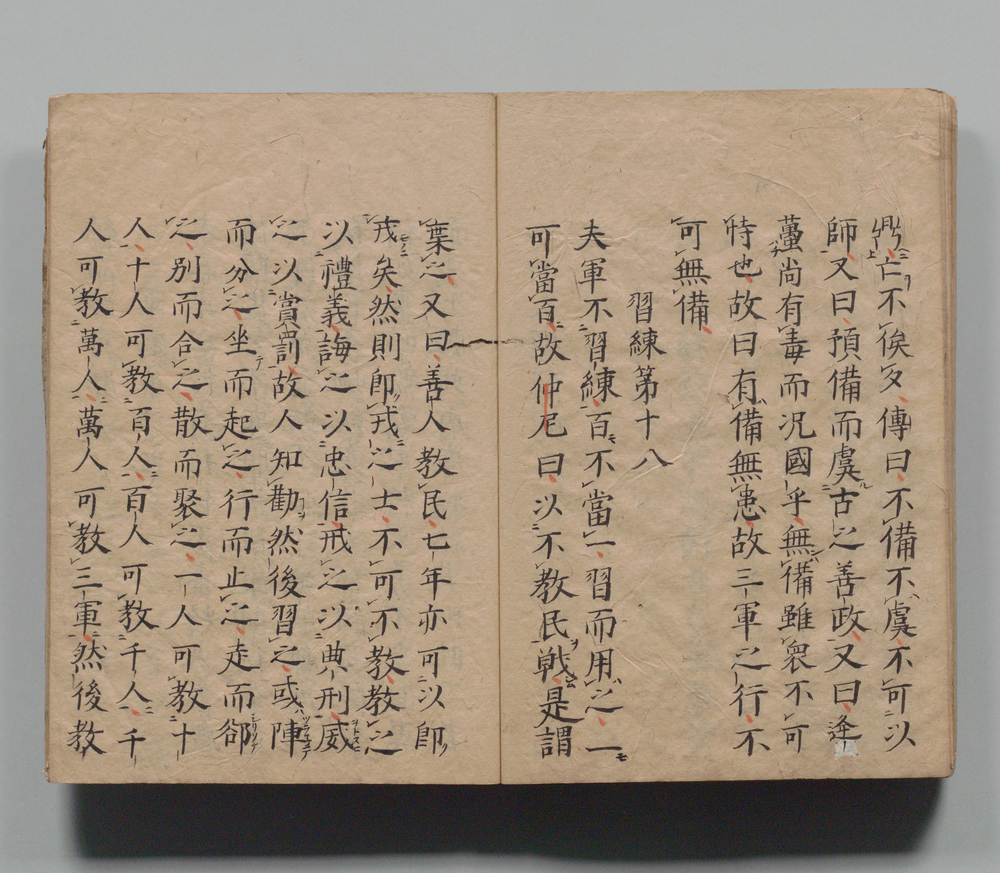 鼎亡不俟夕傳曰不備不虞不可以
師又曰預備而虞古之善政又曰逢
蠆尚有毒而况國乎無備雖衆不可
恃也故曰有備無患故三軍之行不
可無備
習練第十八
夫軍不習練百不當一習而用之一
可當百故仲尼曰以不教民戰是謂
棄之又曰善人教民七年亦可以即
戎矣然則即戎之士不可不教教之
以禮義誨之以忠信戒之以典刑威
之以賞罰故人知勸然後習之或陣
而分之坐而起之行而止之走而郤
之別而合之散而聚之一人可教十
人十人可教百人百人可教千人千
人可教萬人萬人可教三軍然後教